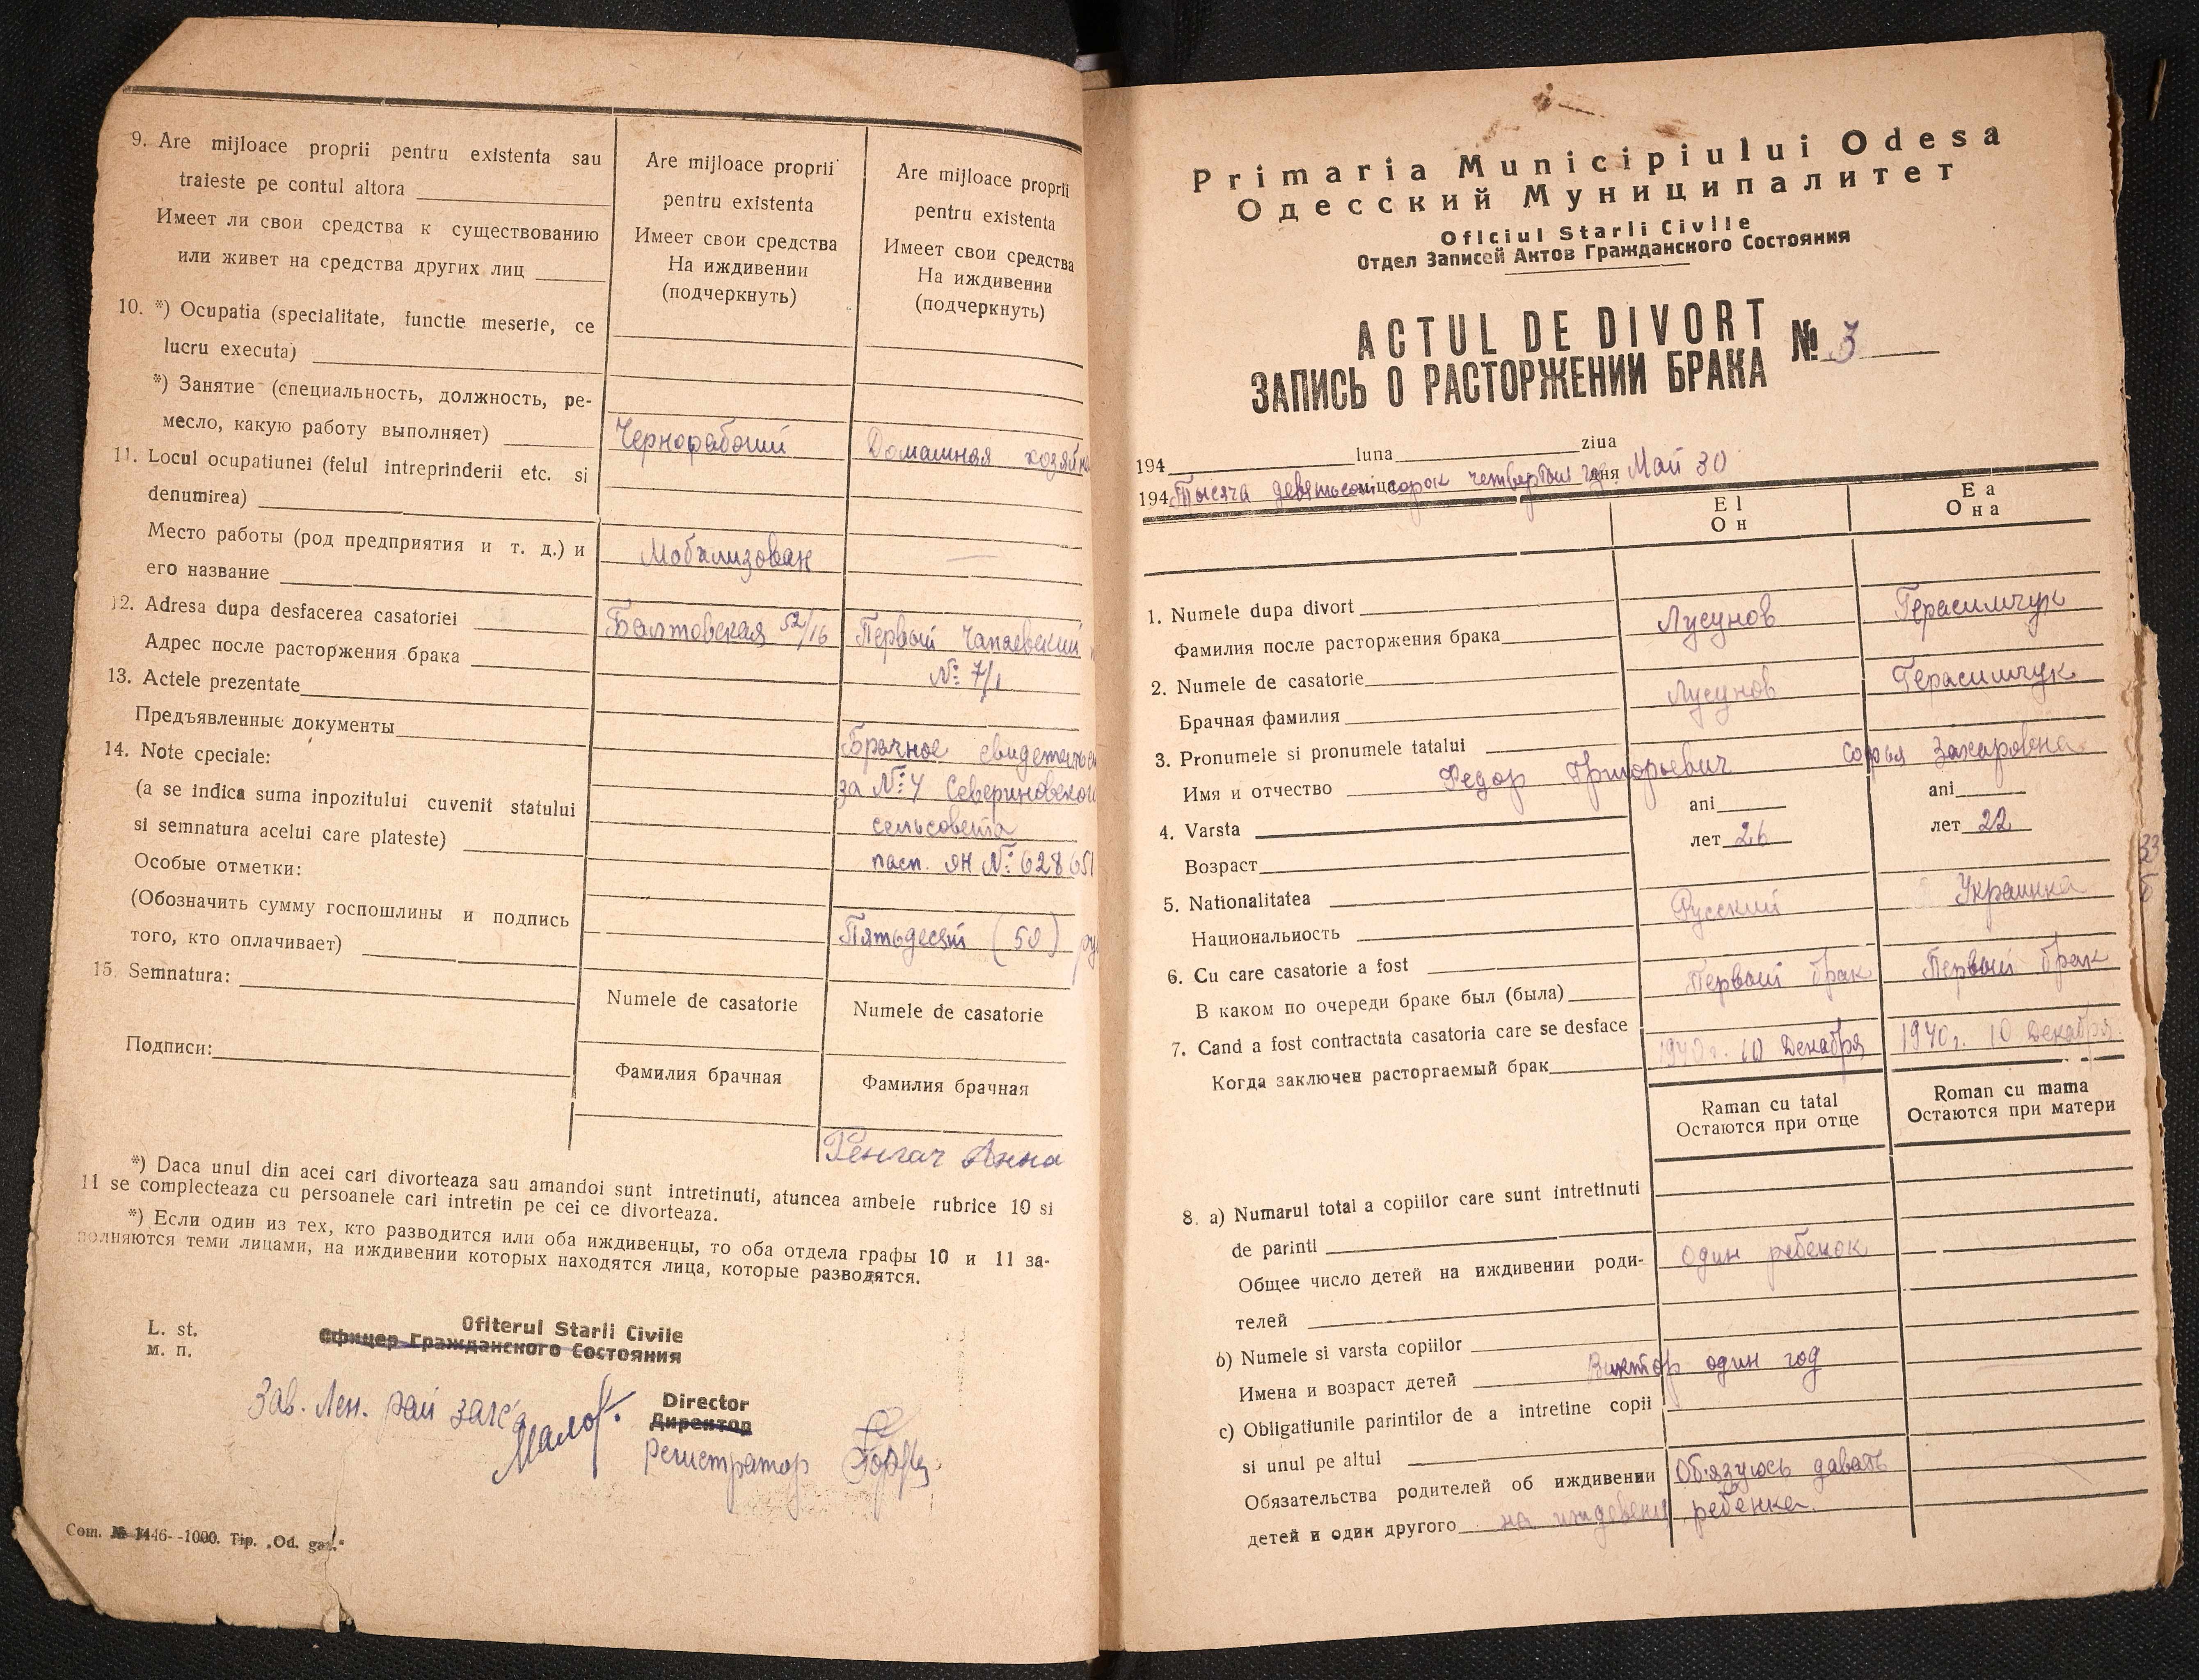 9. Are mijloace proprii pentru existenta sau
traieste pe contul altora
Имеет ли свои средства к существованию
или живет на средства других лиц
Are mijloace proprii
pentru existenta
Имеет свои средства
На иждивении
(подчеркнуть)
Are mijloace proprii
pentru existenta
Имеет свои средства
На иждивении
(подчеркнуть)
10. *) Ocupatia (specialitate, functie meserie, ce
lucru executa)
*) Занятие (специальность, должность, ре-
месло, какую работу выполняет)
Чернорабочий
Домашняя хозяйка
11. Locul ocupatiunei (felul intreprinderii etc. si
denumirea)
Место работы (род предприятия и т. д.) и
его название
Мобилизован
—
12. Adresa dupa desfacerea casatoriei
Адрес после расторжения брака
Балтовская 52/16
Первый Чапаевский
№ 7/1
13. Actele prezentate
Предъявленные документы
Брачное свидетельс
за № 4 Севериновского
сельсовета
пасп. ЯН № 628651
14. Note speciale:
(a se indica suma inpozitului cuvenit statului
si semnatura acelui care plateste)
Особые отметки:
(Обозначить сумму госпошлины и подпись
того, кто оплачивает)
Пятьдесят (50) ру
15. Semnatura:
Подписи:
Numele de casatorie
Фамилия брачная
Numele de casatorie
Фамилия брачная
Анна
*) Daca unul din acei cari divorteaza sau amandoi sunt intretinuti, atuncea ambele rubrice 10 si
11 se complecteaza cu persoanele cari intretin pe cei ce divorteaza.
*) Если один из тех, кто разводится или оба иждивенцы, то оба отдела графы 10 и 11 за-
полняются теми лицами, на иждивении которых находятся лица, которые разводятся.
L. st.
м. п.
Ofiterul Starii Civile
Офицер Гражданского Состояния
Зав. Лен. рай загс'а
Director
Директор
Регистратор
Com. № 1446--1000. Tip. „Od. gaz."
Primaria Municipiului Odesa
Одесский Муниципалитет
Oficiul Starii Civile
Отдел Записей Актов Гражданского Состояния
ACTUL DE DIVORT
ЗАПИСЬ О РАСТОРЖЕНИИ БРАКА № 3
194 luna ziua
194 Тысяча девятьсот сорок четвертый дня Май 30
El
Он
Ea
Она
1. Numele dupa divort
Фамилия после расторжения брака
Лусунов
Герасимчук
2. Numele de casatorie
Брачная фамилия
Лусунов
Герасимчук
3. Pronumele si pronumele tatalui
Имя и отчество
Федор Григорьевич
Софья Захаровна
4. Varsta
Возраст
ani
лет 26
ani
лет 22
5. Nationalitatea
Национальность
Русский
Украинка
6. Cu care casatorie a fost
В каком по очереди браке был (была)
Первый брак
Первый брак
7. Cand a fost contractata casatoria care se desface
Когда заключен расторгаемый брак
1940 г. 10 Декабря
1940 г. 10 Декабря
Raman cu tatal
Остаются при отце
Roman cu mama
Остаются при матери
8. a) Numarul total a copiilor care sunt intretinuti
de parinti
Общее число детей на иждивении роди-
телей
один ребенок
b) Numele si varsta copiilor
Имена и возраст детей
Виктор один год
c) Obligatiunile parintilor de a intretine copii
si unul pe altul
Обязательства родителей об иждивении
детей и один другого
Обязуюсь давать
на иждевени ребенка